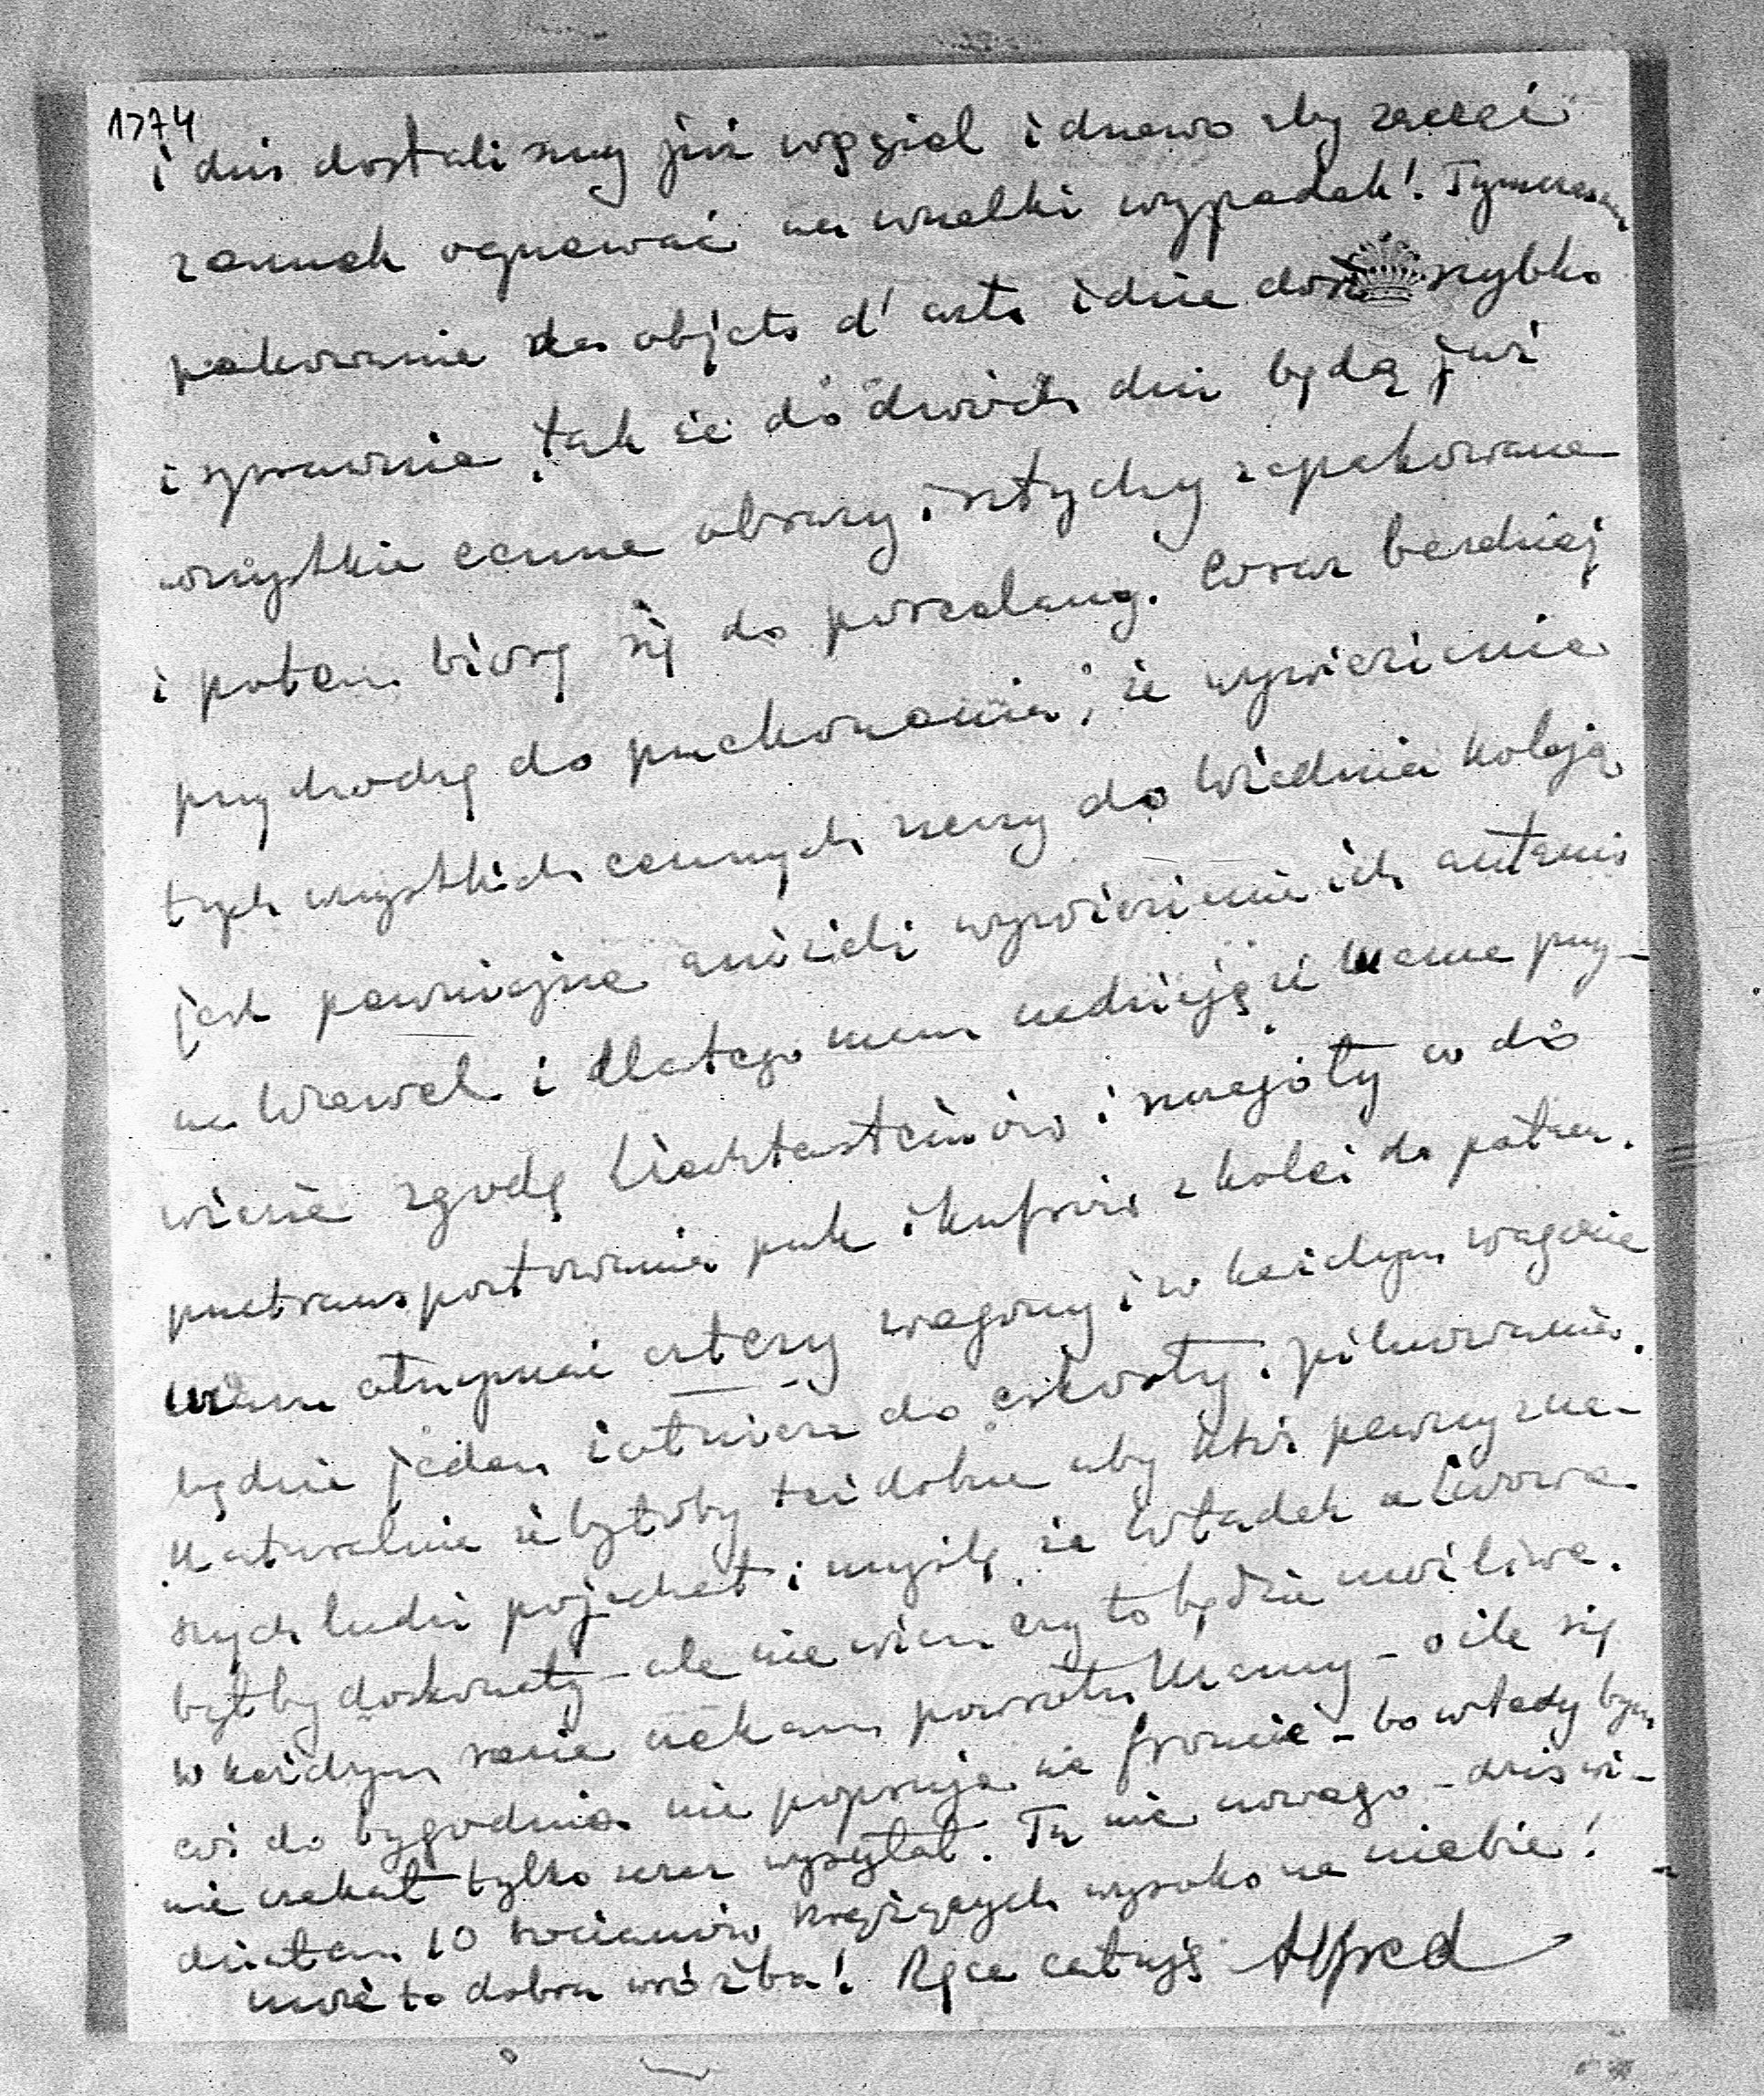 1774
i dziś dostaliśmy już węgiel i drzewo aby zacząć
zamek ogrzewać na wszelki wypadek! Tymczasem
pakowanie des objets d'arts idzie dość szybko
i sprawnie, tak że do dwóch dni będą już
wszystkie cenne obrazy i sztychy zapakowane
i potem biorę się do porcelany. Coraz bardziej
przychodzę do przekonania, że wywiezienie
tych wszystkich cennych rzeczy do Wiednia koleją
jest pewniejsze aniżeli wywiezienie ich autami
na Wawel i dlatego mam nadzieję że Mama przy-
wiezie zgodę Liechtensteinów i szczegóły co do
przetransportowania pak i kufrów z kolei do pałacu.
Mam otrzymać cztery wagony i w każdym wagonie
będzie jeden żołnierz do eskorty i pilnowania.
Naturalnie że byłoby też dobrze aby ktoś pewny z na-
szych ludzi pojechał i myślę że Władek a Lwowa
byłby doskonały – ale nie wiem czy to będzie możliwe.
W każdym razie czekam powrotu Mamy – o ile się
coś do tygodnia nie popsuje na froncie – bo wtedy bym
nie czekał tylko zaraz wysyłał. Tu nic nowego – dziś wi-
działem 10 bocianów krążących wysoko na niebie!
może to dobra wróżba! Ręce całuję Alfred